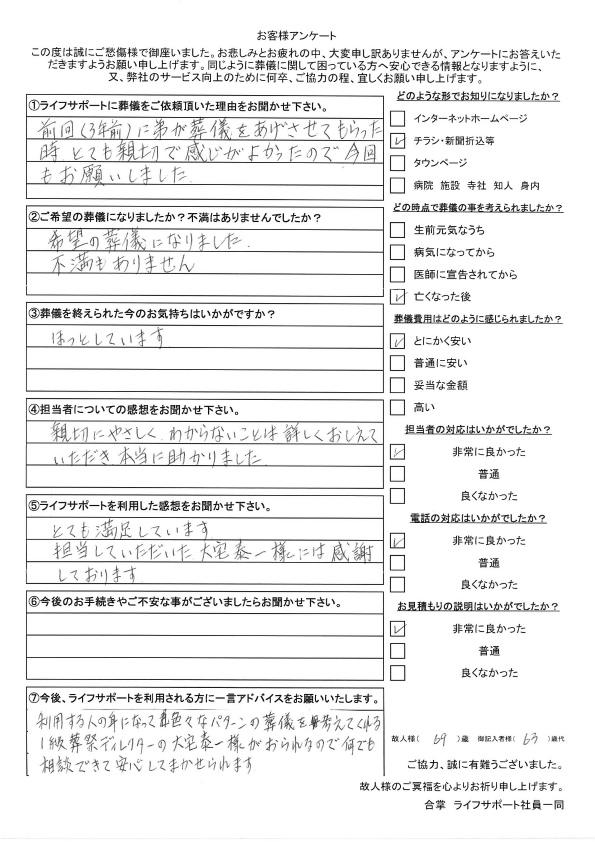 お客様アンケート
この度は誠にご愁傷様で御座いました。お悲しみとお疲れの中、大変申し訳ありませんが、アンケートにお答えいた
だきますようお願い申し上げます。同じように葬儀に関して困っている方へ安心できる情報となりますように、
又、弊社のサービス向上のために何卒、ご協力の程、宜しくお願い申し上げます。
①ライフサポートに葬儀をご依頼頂いた理由をお聞かせ下さい。
前回(3年前)に弟が葬儀をあげさせてもらった
時とても親切で感じがよかったので今回
もお願いしました
②ご希望の葬儀になりましたか？不満はありませんでしたか？
希望の葬儀になりました
不満もありません
③葬儀を終えられた今のお気持ちはいかがですか？
ほっとしています
④担当者についての感想をお聞かせ下さい。
親切にやさしく、わからないことは詳しくおしえて
いただき本当に助かりました
⑤ライフサポートを利用した感想をお聞かせ下さい。
とても満足しています
担当していただいた大宅泰一様には感謝
しております
⑥今後のお手続きやご不安な事がございましたらお聞かせ下さい。
⑦今後、ライフサポートを利用される方に一言アドバイスをお願いいたします。
利用する人の身になって色々なパターンの葬儀を考えてくれる
1級葬祭ディレクターの大宅泰一様がおられるので何でも
相談できて安心してまかせられます
どのような形でお知りになりましたか？
インターネットホームページ
チラシ・新聞折込等
タウンページ
病院 施設 寺社 知人 身内
どの時点で葬儀の事を考えられましたか？
生前元気なうち
病気になってから
医師に宣告されてから
亡くなった後
葬儀費用はどのように感じられましたか？
とにかく安い
普通に安い
妥当な金額
高い
担当者の対応はいかがでしたか？
非常に良かった
普通
良くなかった
電話の対応はいかがでしたか？
非常に良かった
普通
良くなかった
お見積もりの説明はいかがでしたか？
非常に良かった
普通
良くなかった
故人様( 69 )歳 御記入者様( 63 )歳代
ご協力、誠に有難うございました。
故人様のご冥福を心よりお祈り申し上げます。
合掌 ライフサポート社員一同